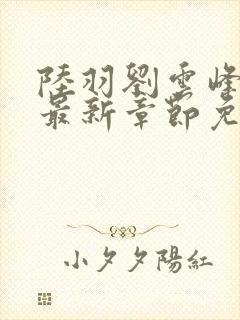 陸羽劉雲峰
最新章節免
小夕夕陽紅